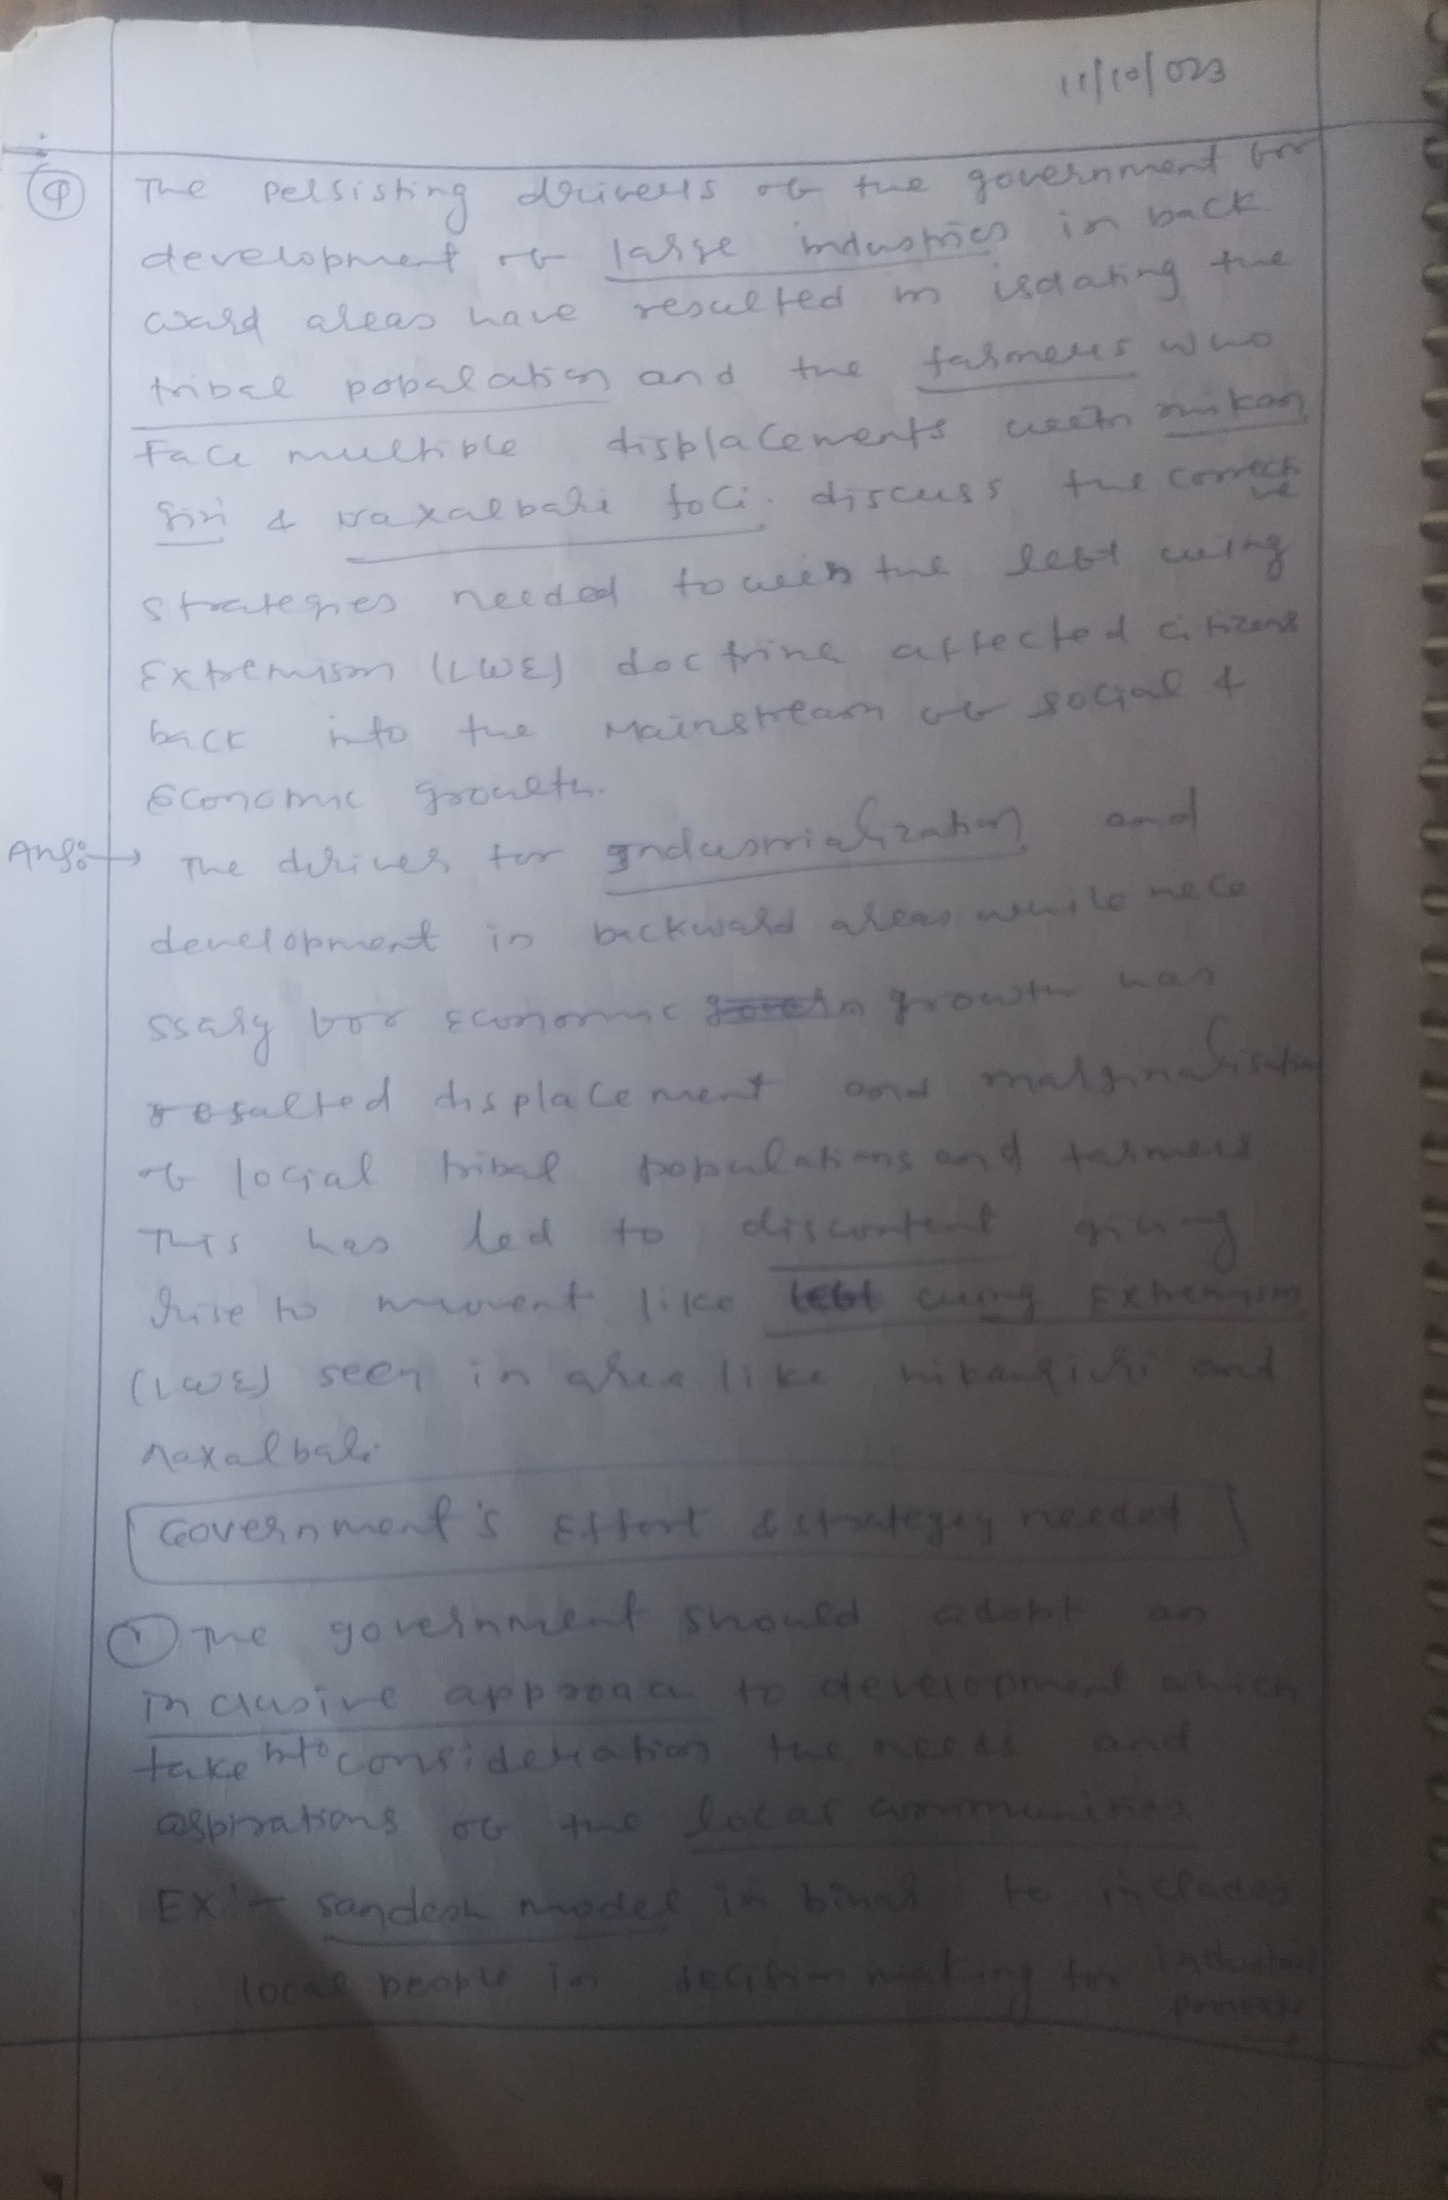 11/10/023
Q The persisting drivers of the government for
development of large industries in back
ward areas have resulted in isolating the
tribal population and the farmers who
face multiple displacements with malkan
giri & Naxalbari foci. discuss the correcti
ve
strategies needed to win the left wing
Extremism (LWE) doctrine affected citizens
back into the mainstream of social &
Economic growth.
Ans:→ The drives for Industrialization and
development in backward areas while nece
ssary for economic growth has
resulted displacement and marginalisation
of local tribal populations and farmers
This has led to discontent giving
rise to movent like left wing Extremism
(LWE) seen in area like and
naxalbari
Government's Effort & strategy needed
① The government should adopt an
inclusive approach to development which
take into consideration the needs and
aspirations of the local communities
EX:- sandesh model in bihar to includes
local people in decision making for industrial